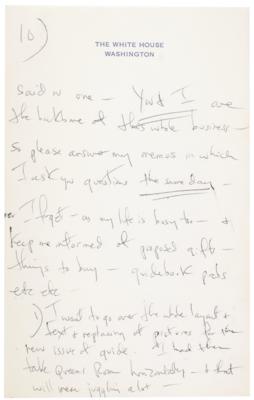 10)
THE WHITE HOUSE
WASHINGTON
said no one — You & I are
the backbone of this whole business —
so please answer my memos in which
I ask you questions the same day —
I forget — as my life is busy too — &
keep me informed of proposed gifts —
things to buy — guidebook pads
etc etc —
1) I want to go over the whole layout &
text & replacing of pictures for the
new issue of guide. & I had them
take Green Room horizontally — & that
will mean juggling a lot —